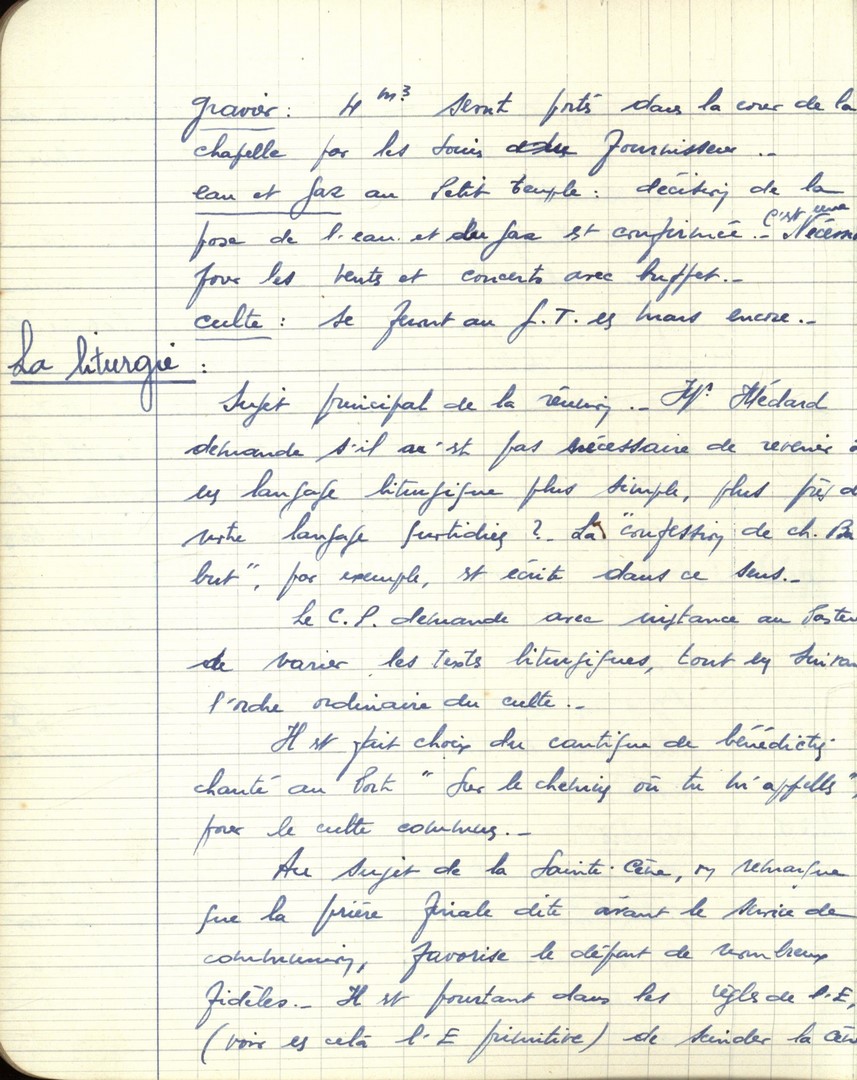 gravier : 4 m3 seront portés dans la cour de la
chapelle par les soins du fournisseur ..
eau et gaz au Petit Temple : décision de la
pose de l'eau et du gaz est confirmée .- C'est une
pour les vents et concerts avec buffet .-
culte : se feront au G.T. en mars encore .-
La liturgie :
Sujet principal de la réunion .- Mr Médard
demande s'il n'est pas nécessaire de revenir à
un langage liturgique plus simple, plus près
notre langage quotidien ? - La "confession de ch. Ba
but", par exemple, est écrite dans ce sens .-
Le C.P. demande avec instance au Pasteu
de varier les textes liturgiques, tout en suivan
l'ordre ordinaire du culte .-
Il est fait choix du cantique de bénédiction
chanté au Port "Sur le chemin où tu m'appelles",
pour le culte commun .-
Au sujet de la Sainte-Cène, on remarque
que la prière finale dite avant le service de
communion, favorise le départ de nombreux
fidèles .- Il est pourtant dans les règles de l'E,
(voir en cela l'E primitive) de scinder la Cèn